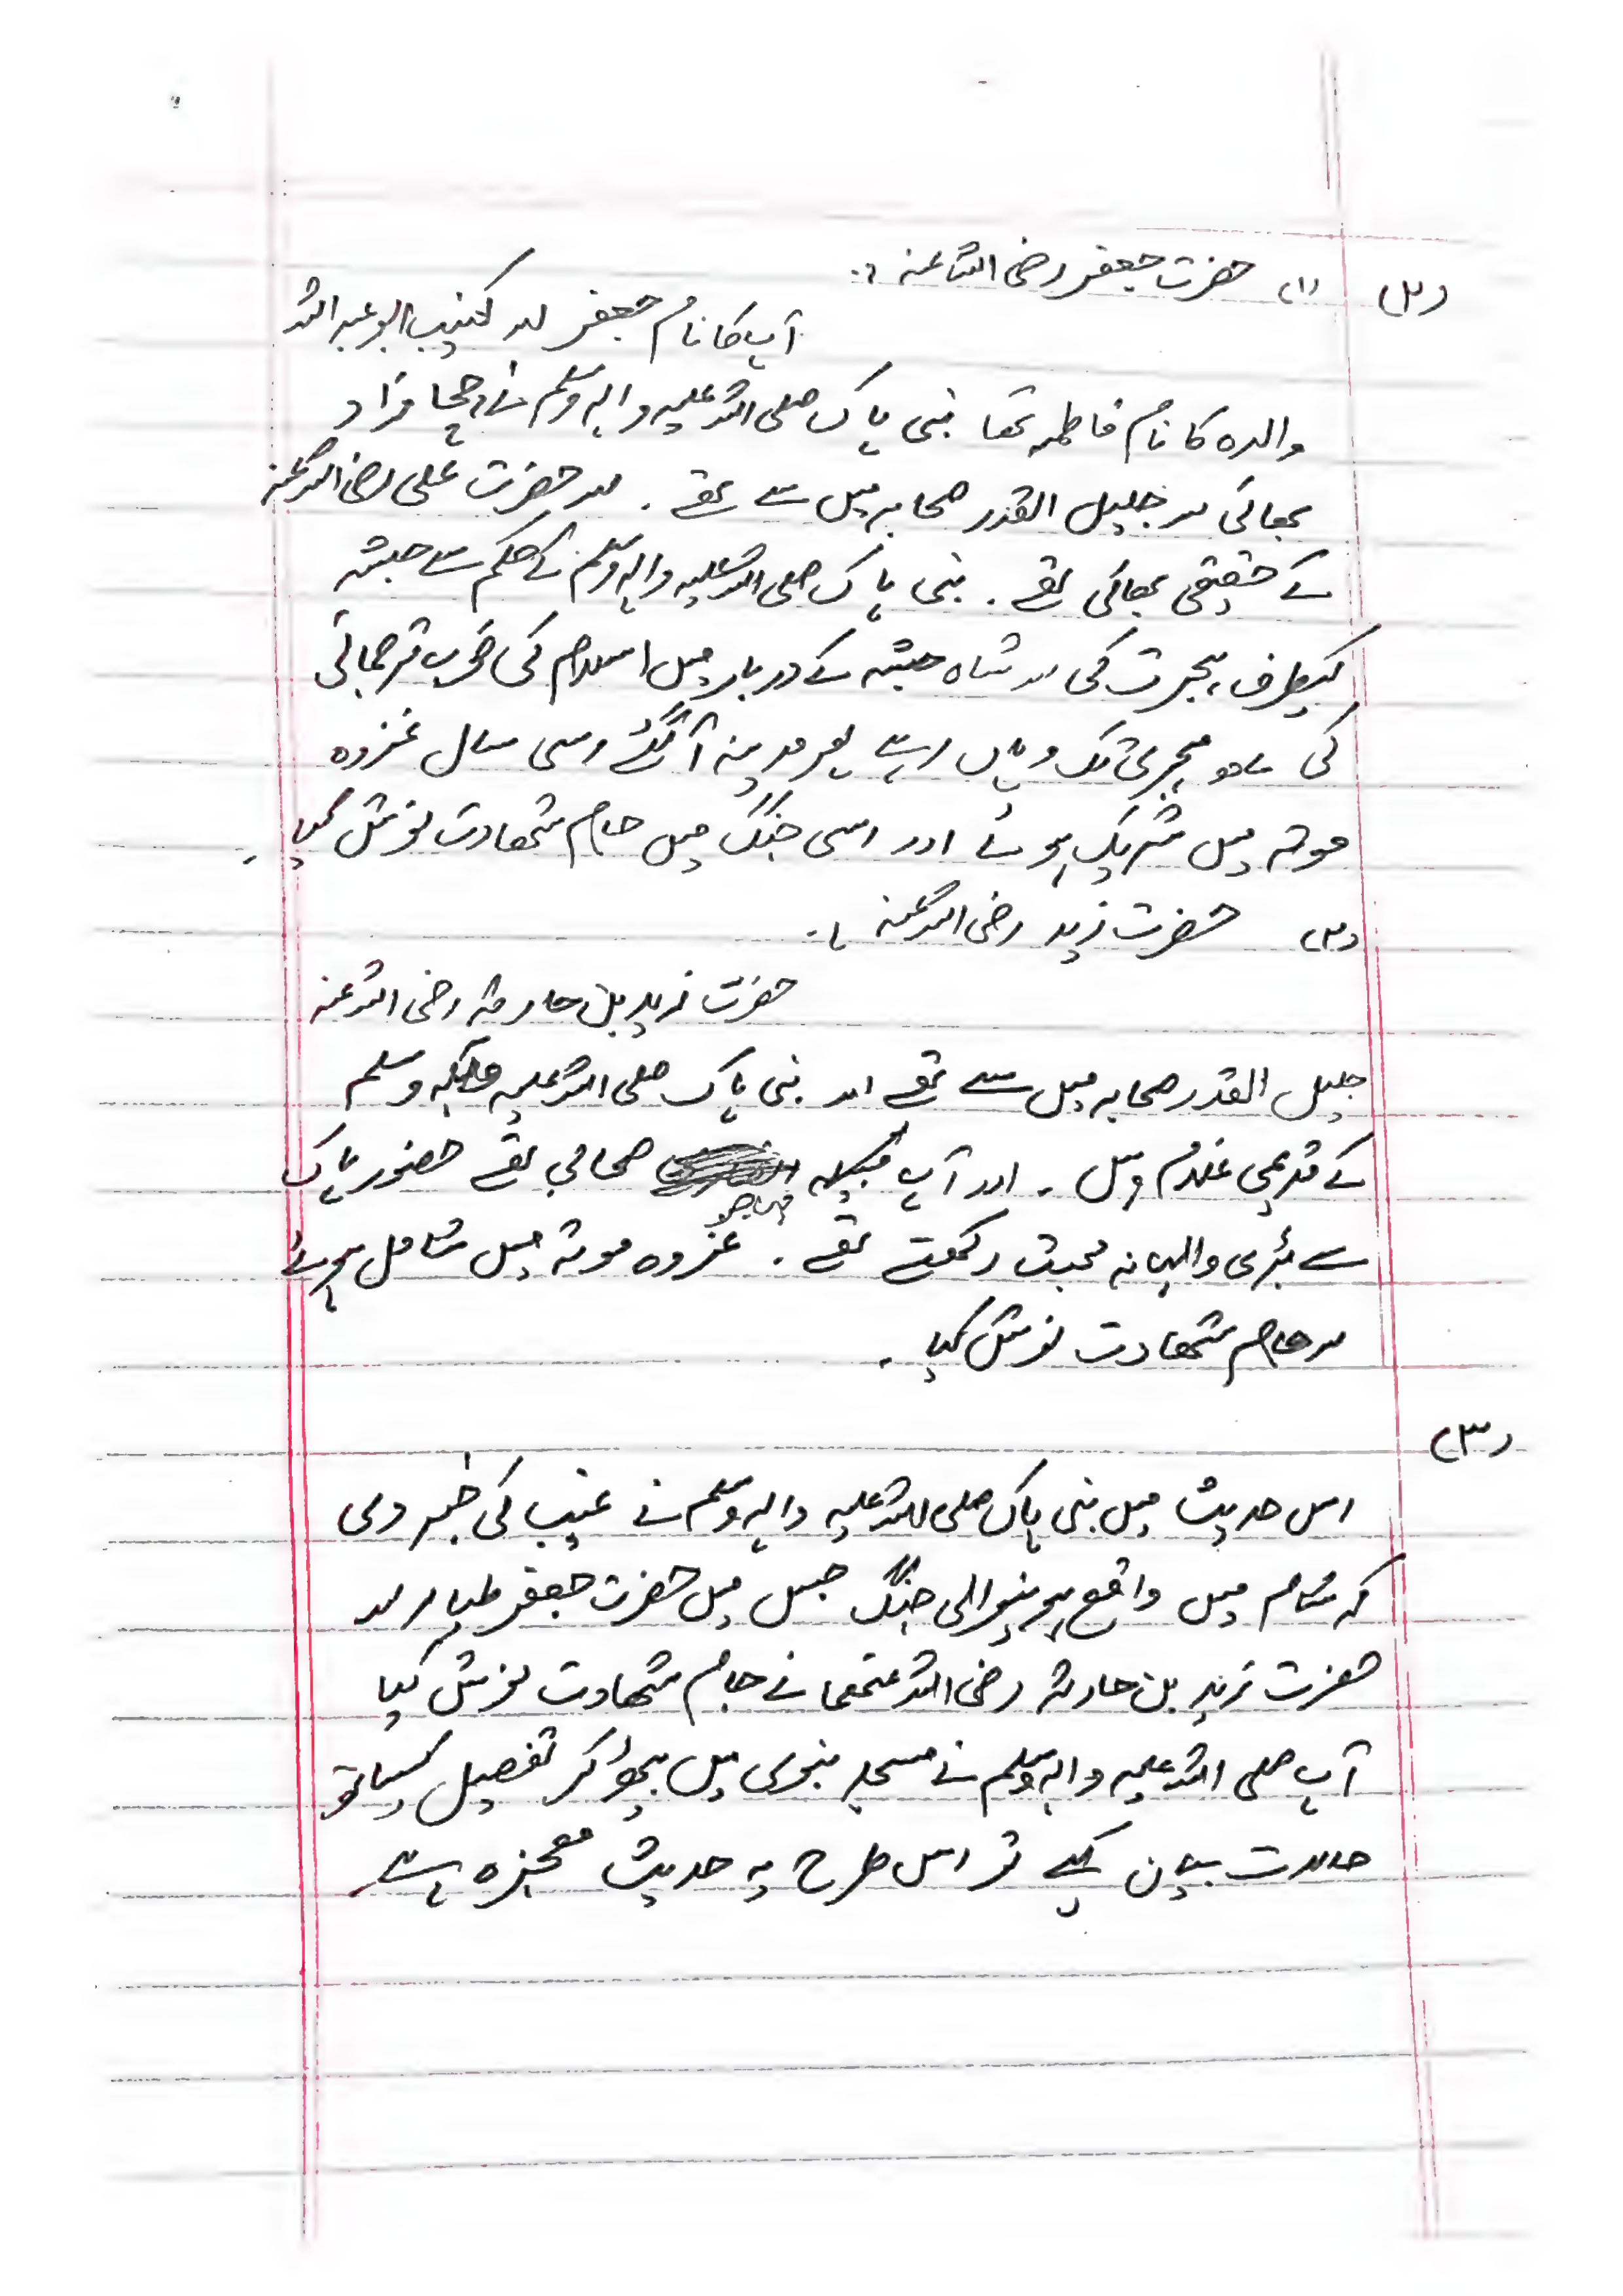 (۲) (۱) حضرت جعفر رضی اللہ عنہ :.
آپ کا نام جعفر اور کنیت ابو عبد اللہ
والدہ کا نام فاطمہ تھا نبی پاک صلی اللہ علیہ والہ وسلم کے چچا زاد
بھائی اور جلیل القدر صحابہ میں سے تھے۔ اور حضرت علی رضی اللہ عنہ
کے حقیقی بھائی تھے۔ نبی پاک صلی اللہ علیہ والہ وسلم کے حکم سے حبشہ
کیطرف ہجرت کی اور شاہ حبشہ کے دربار میں اسلام کی خوب ترجمانی
کی ہجری تک وہاں رہے پھر مدینہ آ گئے اسی سال غزوہ
موتہ میں شریک ہوئے اور اسی جنگ میں جام شہادت نوش کیا۔
(۲) حضرت زید رضی اللہ عنہ :.
حضرت زید بن حارثہ رضی اللہ عنہ
جلیل القدر صحابہ میں سے تھے اور نبی پاک صلی اللہ علیہ والہ وسلم
کے قدیمی غلام ہیں۔ اور آپ قبیلہ مہاجر صحابی تھے حضور پاک
سے بڑی والہانہ محبت رکھتے تھے۔ غزوہ موتہ میں شامل ہوئے
اور جام شہادت نوش کیا۔
(۳)
اس حدیث میں نبی پاک صلی اللہ علیہ والہ وسلم نے غیب کی خبر دی
کہ شام میں واقع ہونیوالی جنگ جس میں حضرت جعفر طیار اور
حضرت زید بن حارثہ رضی اللہ عنھما نے جام شھادت نوش کیا
آپ صلی اللہ علیہ والہ وسلم نے مسجد نبوی میں بیٹھ کر تفصیل کیساتھ
حالات بیان کیے تو اس طرح یہ حدیث معجزہ ہے۔